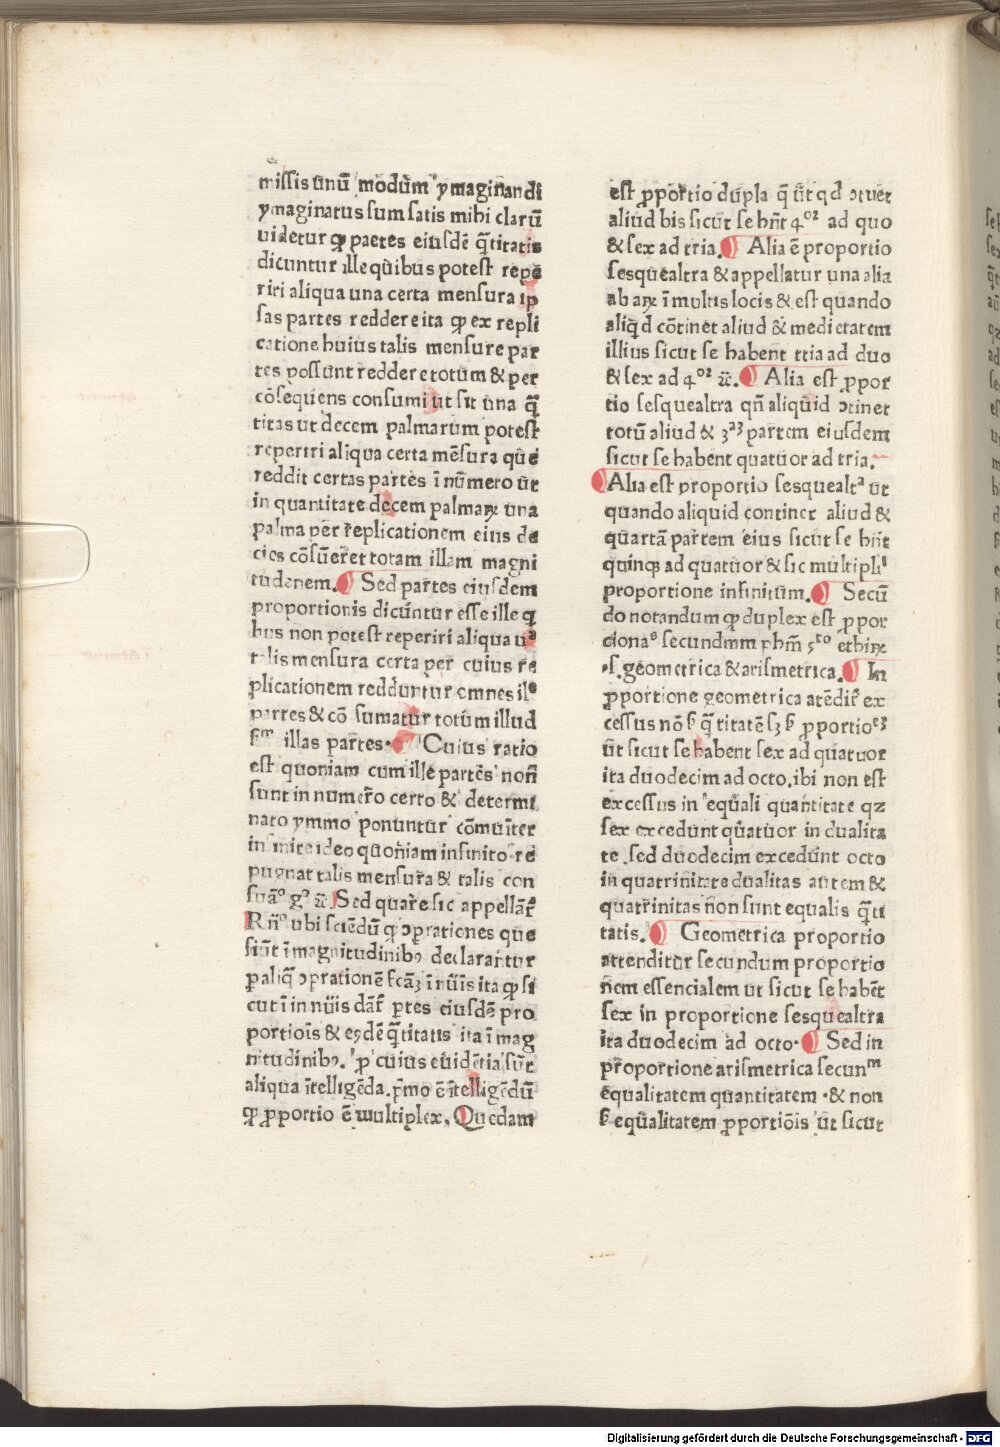 missis unū modum ymaginandi
ymaginatus sum satis mihi clarū
uidetur ꝙ paetes eiusdē q̄titatis
dicuntur ille quibus potest repe
riri aliqua una certa mensura ip
sas partes reddere ita ꝙ ex repli
catione huius talis mensure par
tes possunt reddere totum & per
cōsequens consumi ut sit una q̄
titas ut decem palmarum potest
reperiri aliqua certa mēsura que
reddit certas partes ī nūmero ut
in quantitate decem palmaꝝ una
palma per replicationem eius de
cies cōsueret totam illam magni
tudenem. Sed partes eiusdem
proportionis dicuntur esse ille q
bus non potest reperiri aliqua uᵃ
talis mensura certa per cuius re
plicationem redduntur omnes ilᵉ
partes & cō sumatur totum illud
illas partes. Cuius ratio
est quoniam cum ille partes non
sunt in numero certo & determi
nato ymmo ponuntur cōmuniter
infinite ideo quoniam infinito re
pugnat talis mensura & talis con
Sed quare sic appellāt̄
Rn̄ᵒ ubi sciēdū ꝙ ꝓprationes que
siūt ī magnitudinibꝫ declarantur
p aliq̄ ī nūis ita ꝙ si
cut ī in nūis dāt̄ ꝑtes eiusdē pro
portiōis & eꝰdē q̄titatis ita ī mag
nitudinibꝫ. ꝓ cuius euidētia sūt
aliqua ītelligēda. p̄mo ē ītelligēdū
ꝙ ꝓportio ē multiplex, Quedam
est ꝓportio dupla q̄ ut qd ɔtuet
aliud bis sicut se hn̄t 4ᵒʳ ad quo
& sex ad tria. Alia ē proportio
sesquealtra & appellatur una alia
ab aꝝ ī multis locis & est quando
aliq̄d cōtinet aliud & medietatem
illius sicut se habent tria ad duo
& sex ad 4ᵒʳ Alia est ꝓpor
tio sesquealtra qn̄ aliquid ɔtinet
totū aliud & 3ᵃᵐ partem eiusdem
sicut se habent quatuor ad tria.
Alia est proportio sesquealtᵃ ut
quando aliquid continet aliud &
quartā partem eius sicut se hn̄t
quinqꝫ ad quatuor & sic multipliˢ
proportione infinitum. Secū
do notandum ꝙ duplex est ꝓpor
cionaˢ secundmm phm̄ 5ᵗᵒ ethiꝝ
.s. geometrica & arismetrica. In
ꝓportione geometrica atēdit̄ ex
cessus nō q̄titatē sꝫ ꝓportioᵉᵐ
ut sicut se habent sex ad quatuor
ita duodecim ad octo. ibi non est
excessus in equali quantitate qꝫ
sex excedunt quatuor in dualita
te sed duodecim excedunt octo
in quatrinitate dualitas autem &
quatrinitas non sunt equalis q̄ti
tatis. Geometrica proportio
attenditur secundum proportio
nem essencialem ut sicut se habēt
sex in proportione sesquealtra
ita duodecim ad octo. Sed in
proportione arismetrica secunᵐ
equalitatem quantitatem . & non
equalitatem ꝓportiōis ut sicut
Digitalisierung gefördert durch die Deutsche Forschungsgemeinschaft - DFG